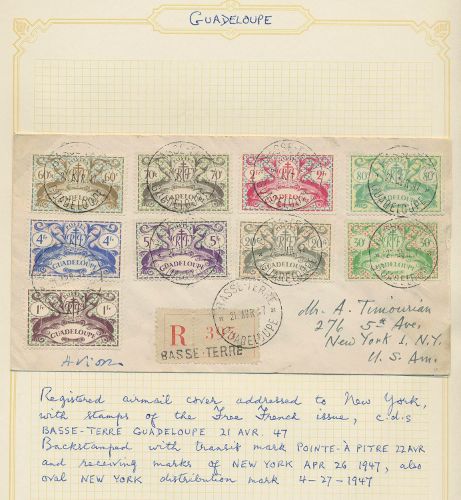 GUADELOUPE
60c 60c
GUADELOUPE
70c 70c
GUADELOUPE
2fr 2fr
GUADELOUPE
80c 80c
GUADELOUPE
4fr 4fr
GUADELOUPE
5fr 5fr
GUADELOUPE
20fr
GUADELOUPE
30c 30c
GUADELOUPE
1fr 1fr
GUADELOUPE
BASSE-TERRE
GUADELOUPE
Avion
R
BASSE-TERRE
Mr. A. Timourian
276 5th Ave.
New York 1, N.Y.
U.S. Am.
Registered airmail cover addressed to New York,
with stamps of the Free French issue, c.d.s
BASSE-TERRE GUADELOUPE 21 AVR. 47
Backstamped with transit mark POINTE-À PITRE 22AVR
and receiving marks of NEW YORK APR 26 1947, also
oval NEW YORK distribution mark 4-27-1947